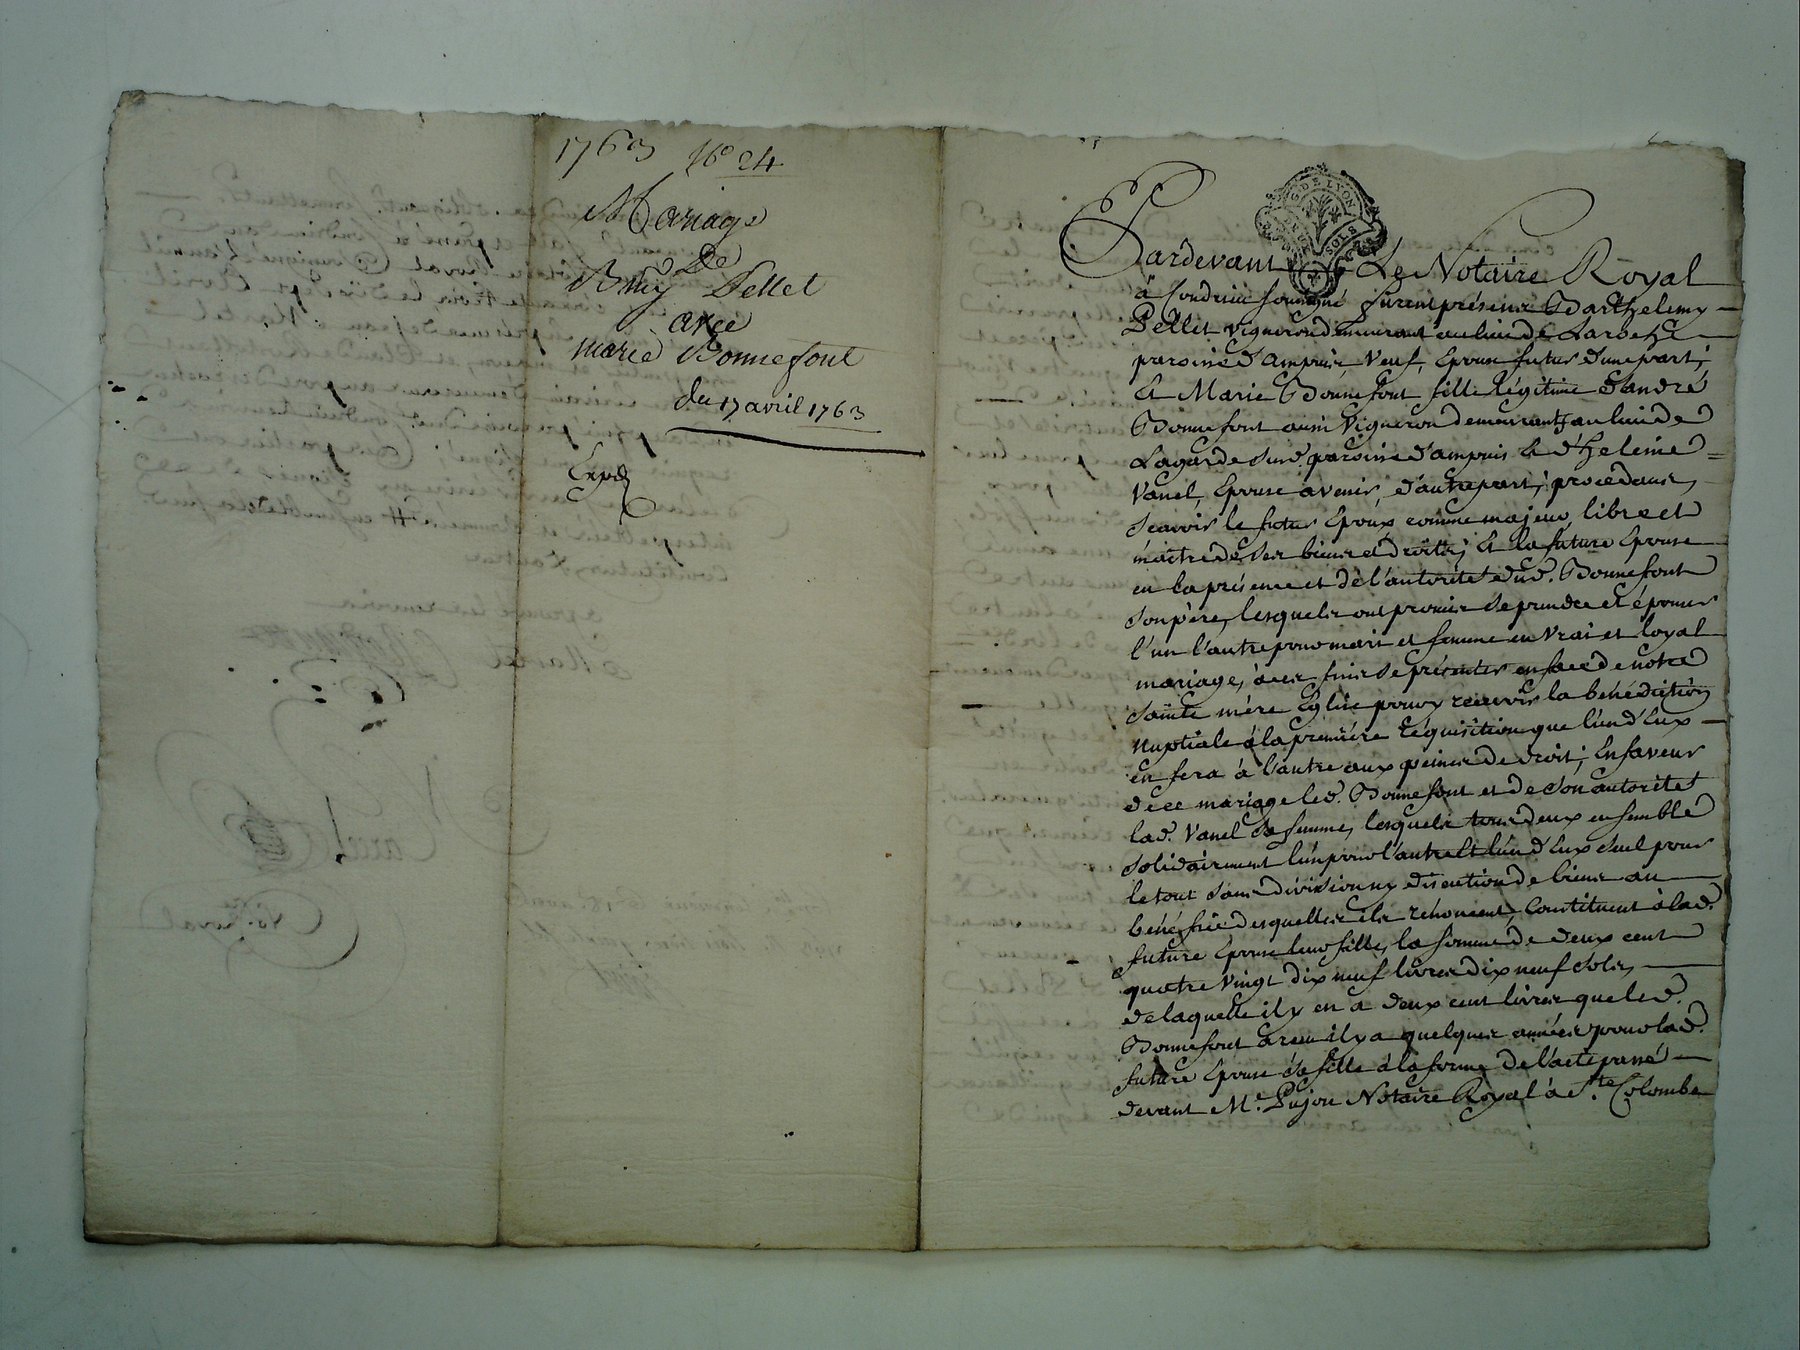 1763 No 24
Mariage
De
Bmy Pellet
avec
marie Bonnefont
du 17 avril 1763
Expé
G. DE LYON
SOLS
Pardevant Le Notaire Royal
à Condrieu soussigné furent présens Barthelemy
Pellet vigneron demeurant au lieu de
paroisse d'ampuis, Veuf, Epoux futur d'une part;
Et Marie Bonnefont fille légitime d'andré
Bonnefont aussi Vigneron demeurant au lieu de
Lagarde susd. paroisse d'ampuis & d'helenie
Vanel, Epouse avenir, d'autre part; procedans,
scavoir le futur Epoux comme majeur, libre et
maitre de ses biens et droits; Et la future Epouse
en la présence et de l'autorité dud. Bonnefont
son père, lesquels ont promis se prendre et épouser
l'un l'autre pour mari et femme en vrai et loyal
mariage, à ces fins se présenter en face de notre
sainte mère Eglise pour y recevoir la bénédiction
nuptiale à la première réquisition que l'un d'Eux
en fera à l'autre aux peines de droit; En faveur
de ce mariage led. Bonnefont et de son autorité
lad. Vanel sa femme, lesquels tous deux ensemble
solidairement l'un pour l'autre et l'un d'Eux seul pour
le tout sans division ny discution de biens au
bénéfice desquelles ils renoncent, Constituent à lad.
future Epouse leur fille, la somme de deux cent
quatre vingt dix neuf livres dix neuf sols,
de laquelle il y en a deux cent livres que led.
Bonnefont a reçu il y a quelques années pour lad.
future Epouse sa fille à la forme de l'acte passé
devant Me. Pujou Notaire Royal à Ste. Colombe